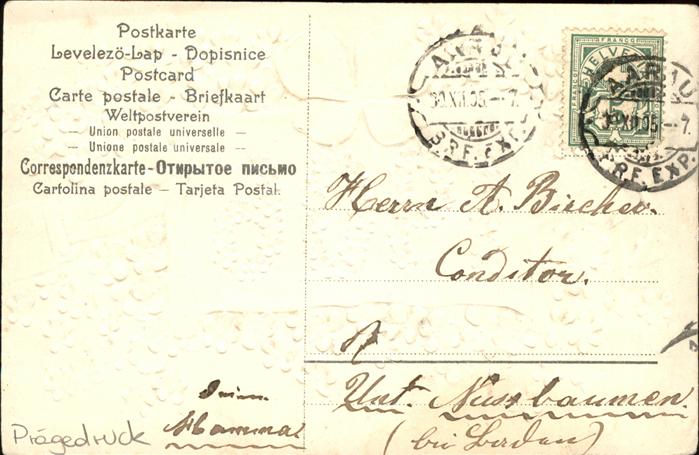 Postkarte
Levelezö-Lap - Dopisnice
Postcard
Carte postale - Briefkaart
Weltpostverein
- Union postale universelle -
- Unione postale universale -
Correspondenzkarte-Открытое письмо
Cartolina postale - Tarjeta Postal.
FRANCO
HELVETIA
AARAU
30.XII.05.-7.
BRF. EXP.
AARAU
30.XII.05.-7.
BRF. EXP.
Herrn A. Bircher.
Conditor.
Unt. Nussbaumen
(bei Baden)
Mamma
Prägedruck